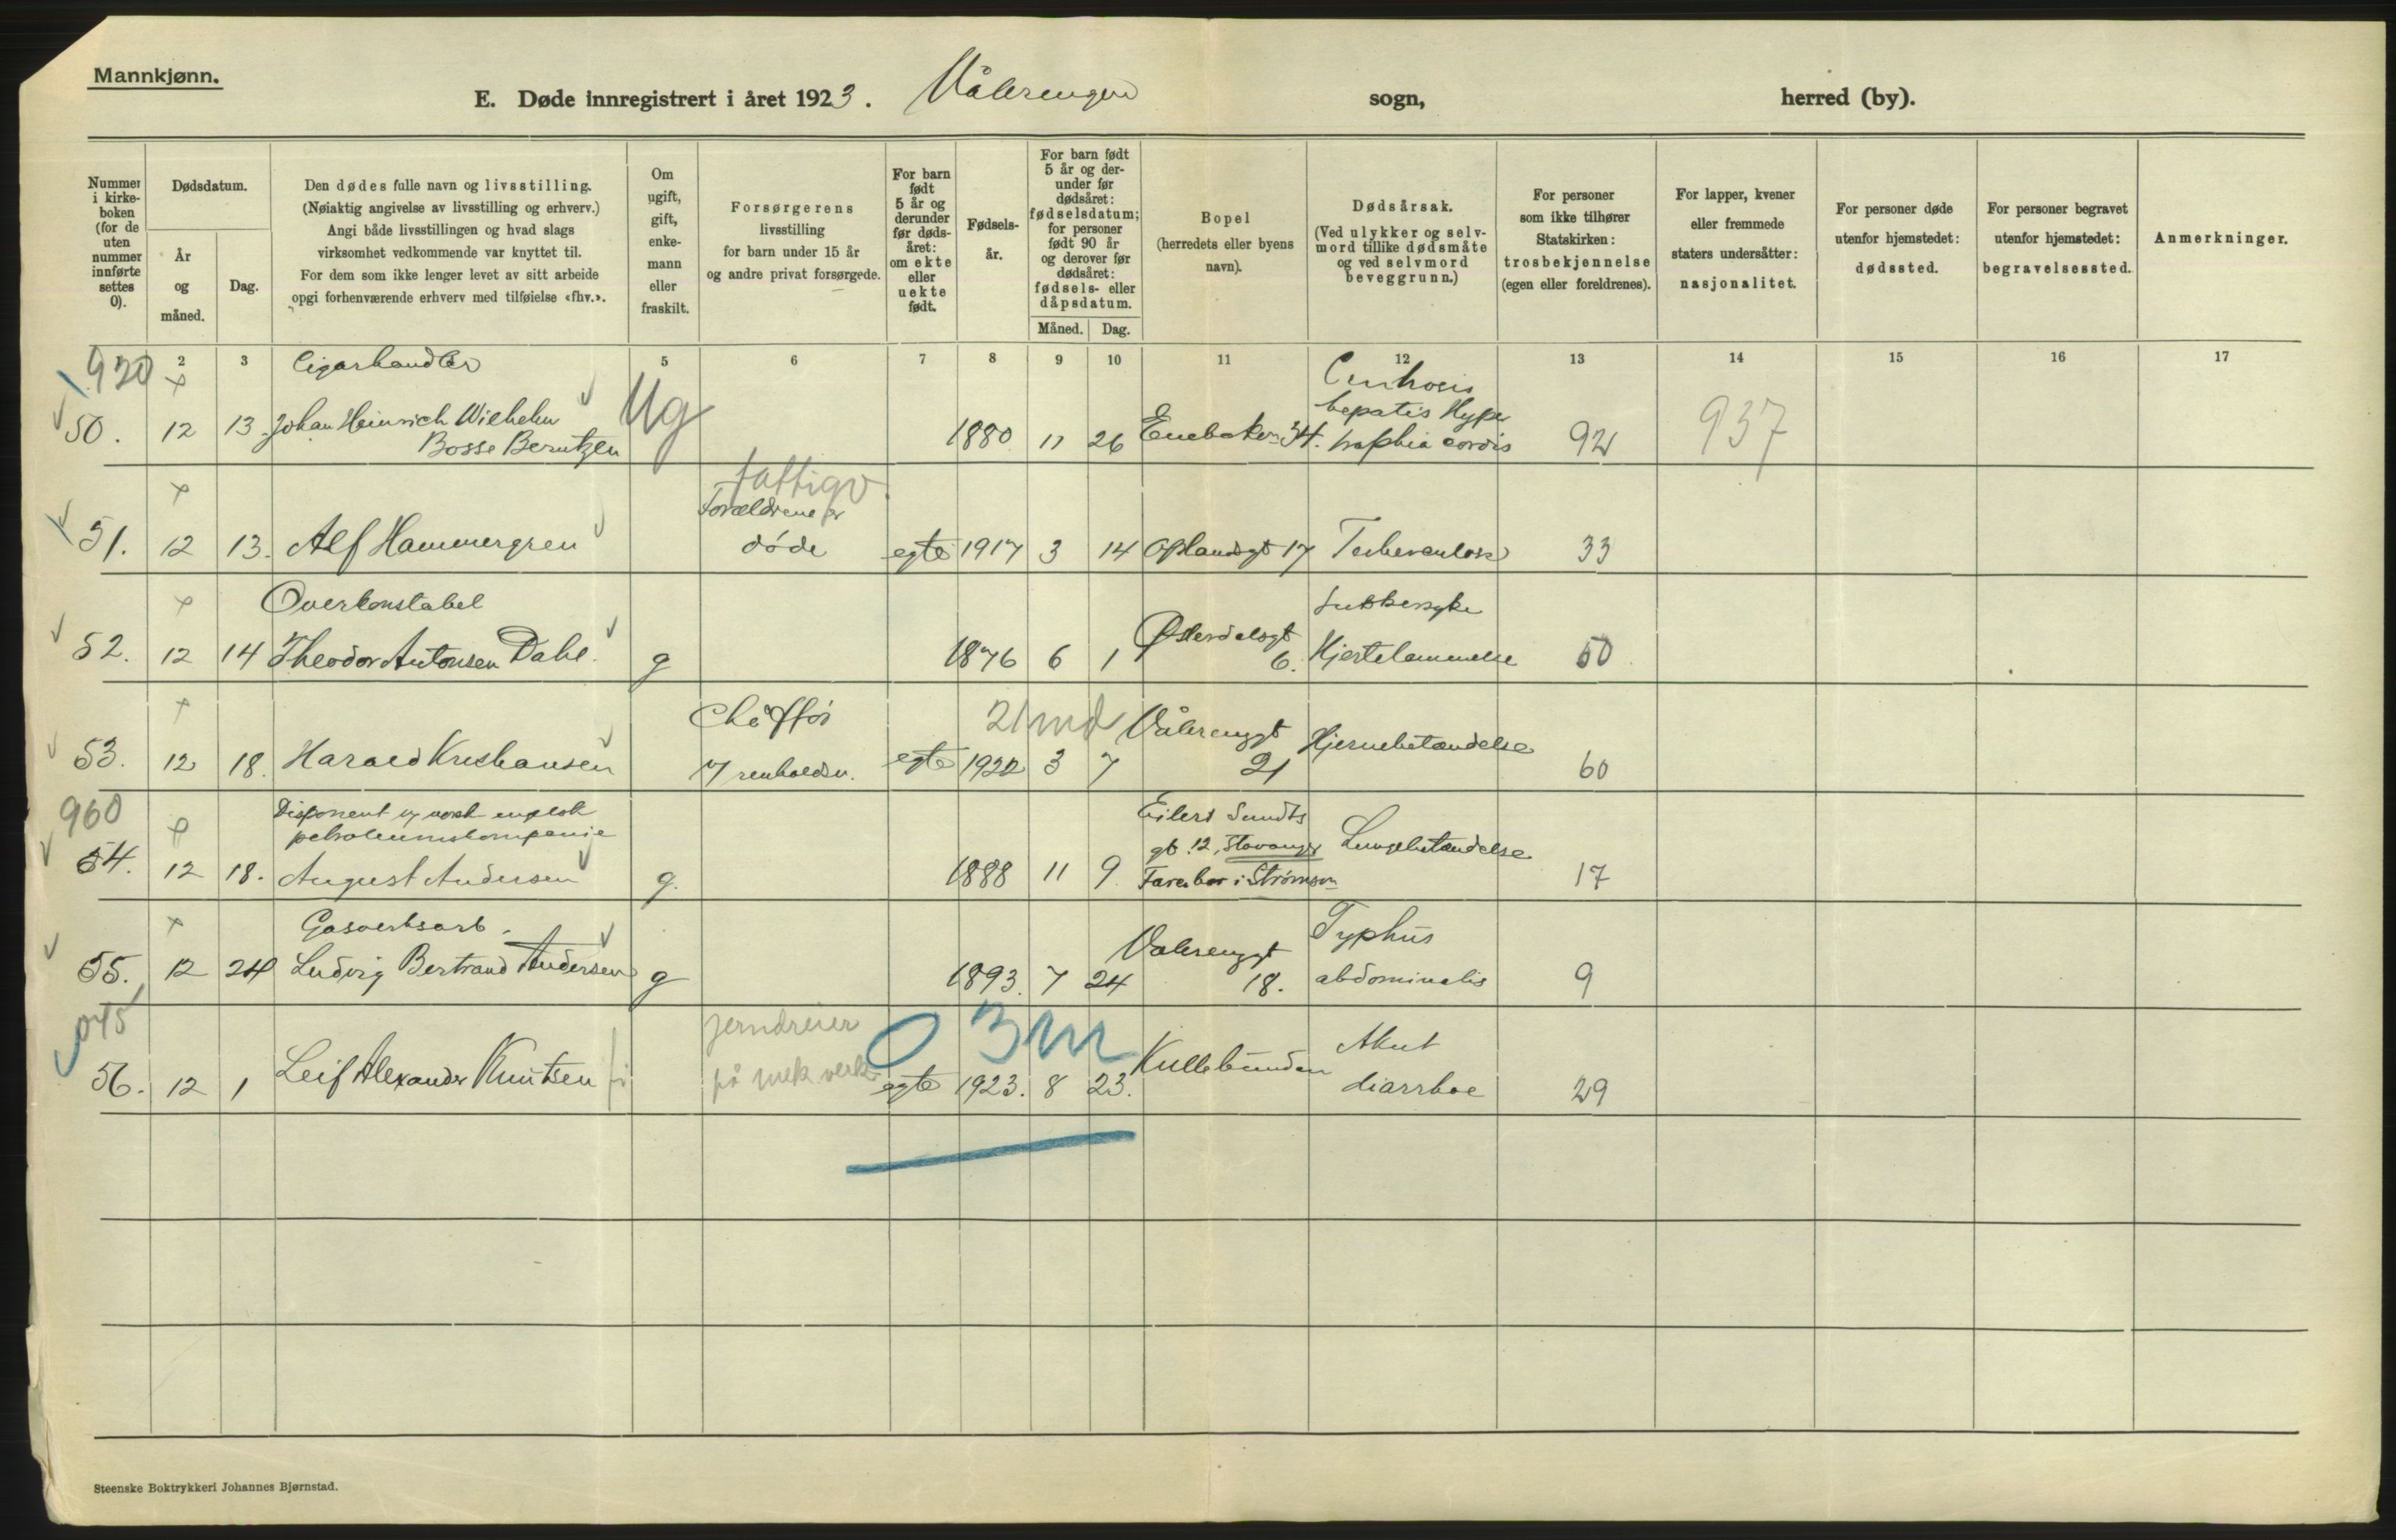 Mannkjønn.
E. Døde innregistrert i året 1923. Vålerengen sogn, herred (by).
Nummer i kirkeboken (for de uten nummer innførte settes 0).
Dødsdatum.
År og måned.
Dag.
Den dødes fulle navn og livsstilling.
(Nøiaktig angivelse av livsstilling og erhverv.)
Angi både livsstillingen og hvad slags
virksomhet vedkommende var knyttet til.
For dem som ikke lenger levet av sitt arbeide
opgi forhenværende erhverv med tilføielse «fhv.».
Om ugift, gift, enkemann eller fraskilt.
Forsørgerens
livsstilling
for barn under 15 år
og andre privat forsørgede.
For barn født 5 år og derunder før dødsåret: om ekte eller uekte født.
Fødselsår.
For barn født 5 år og derunder før dødsåret: fødselsdatum; for personer født 90 år og derover før dødsåret: fødsels- eller dåpsdatum.
Måned. Dag.
Bopel
(herredets eller byens
navn).
Dødsårsak.
(Ved ulykker og selvmord tillike dødsmåte og ved selvmord beveggrunn.)
For personer
som ikke tilhører
Statskirken:
trosbekjennelse
(egen eller foreldrenes).
For lapper, kvener
eller fremmede
staters undersåtter:
nasjonalitet.
For personer døde
utenfor hjemstedet:
dødssted.
For personer begravet
utenfor hjemstedet:
begravelsessted.
Anmerkninger.
2 3 5 6 7 8 9 10 11 12 13 14 15 16 17
920 Cigarhandler
50. 12 13 Johan Heinrich Wilhelm Bosse Berntzen Ug 1880 11 26 Enebakv. 34. Cirrhosis hepatis Hypertrophia cordis 92 937
fattigv
Forældrene er
51. 12 13. Alf Hammergren døde egte 1917 3 14 Oplandsgt 17 Tuberculose 33
Overkonstabel
Sukkersyke
52. 12 14 Theodor Antonsen Dahl. g 1876 6 1 Østerdalsgt 6. Hjertelammelse 50
Chåffør 21 md
53. 12 18. Harald Kristiansen v renholdsv. egte 1922 3 7 Vålerenggt 21 Hjernebetændelse 60
960 Disponent v norsk engelsk
petroleumskompanie
54. 12 18. August Andersen g. 1888 11 9 Eilert Sundts gt. 12, Stavanger Lungebetændelse 17
Gasverksarb.
55. 12 24 Ludvig Bertrand Andersen g 1893. 7 24 Vålerenggt 18. Typhus abdominalis 9
045 jerndreier
på mek verk. 0 3 m
56. 12 1 Leif Alexander Knutsen egte 1923. 8 23. Kullebunden Akut diarrhoe 29
Steenske Boktrykkeri Johannes Bjørnstad.